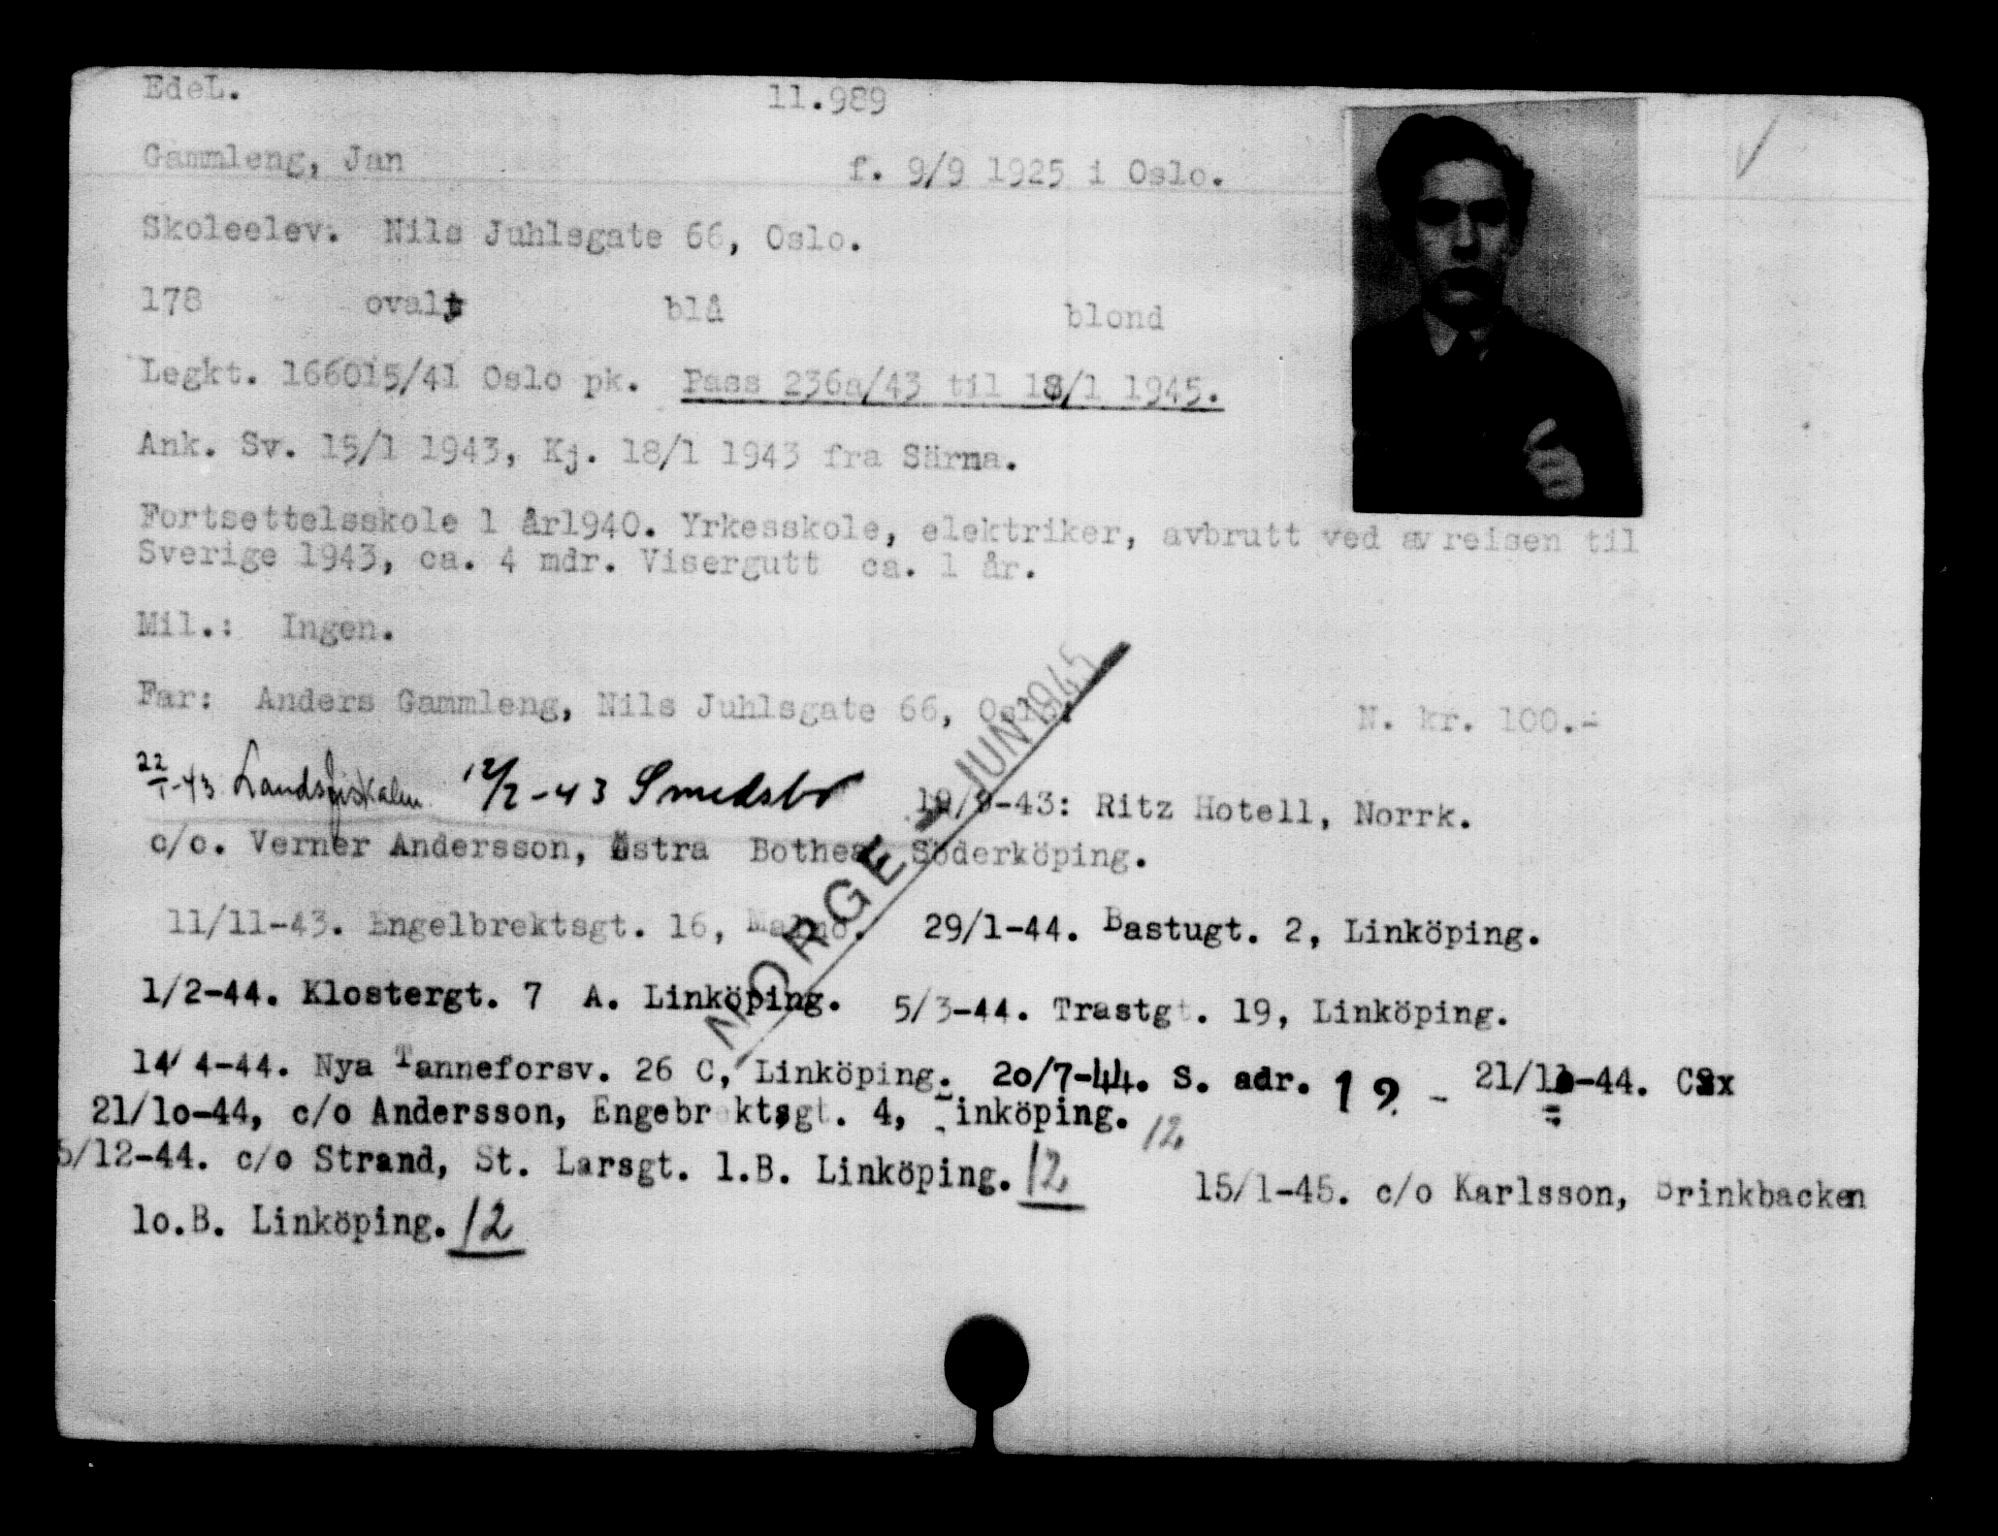 EdeL. 11.989
Gammleng, Jan f. 9/9 1925 i Oslo.
Skoleelev. Nils Juhlsgate 66, Oslo.
178 ovalt blå blond
Legkt. 166015/41 Oslo pk. Pass 236a/43 til 18/1 1945.
Ank. Sv. 15/1 1943, Kj. 18/1 1943 fra Särna.
Fortsettelsskole 1 år1940. Yrkesskole, elektriker, avbrutt ved avreisen til
Sverige 1943, ca. 4 mdr. Visergutt ca. 1 år.
Mil.: Ingen.
Far: Anders Gammleng, Nils Juhlsgate 66, Oslo. N. kr. 100.-
NORGE JUNI 1945
22/1-43 Landsfiskalen 12/2-43 Smedsbo 19/9-43: Ritz Hotell, Norrk.
c/o. Verner Andersson, Östra Söderköping.
11/11-43. Engelbrektsgt. 16, Malmö. 29/1-44. Bastugt. 2, Linköping.
1/2-44. Klostergt. 7 A. Linköping. 5/3-44. Trastgt. 19, Linköping.
14/4-44. Nya Tanneforsv. 26 C, Linköping. 20/7-44. S. adr. 19 - 21/ -44.
21/10-44, c/o Andersson, Engebrektsgt. 4, Linköping. 12
5/12-44. c/o Strand, St. Larsgt. 1.B. Linköping. 12 15/1-45. c/o Karlsson, Brinkbacken
10.B. Linköping. 12